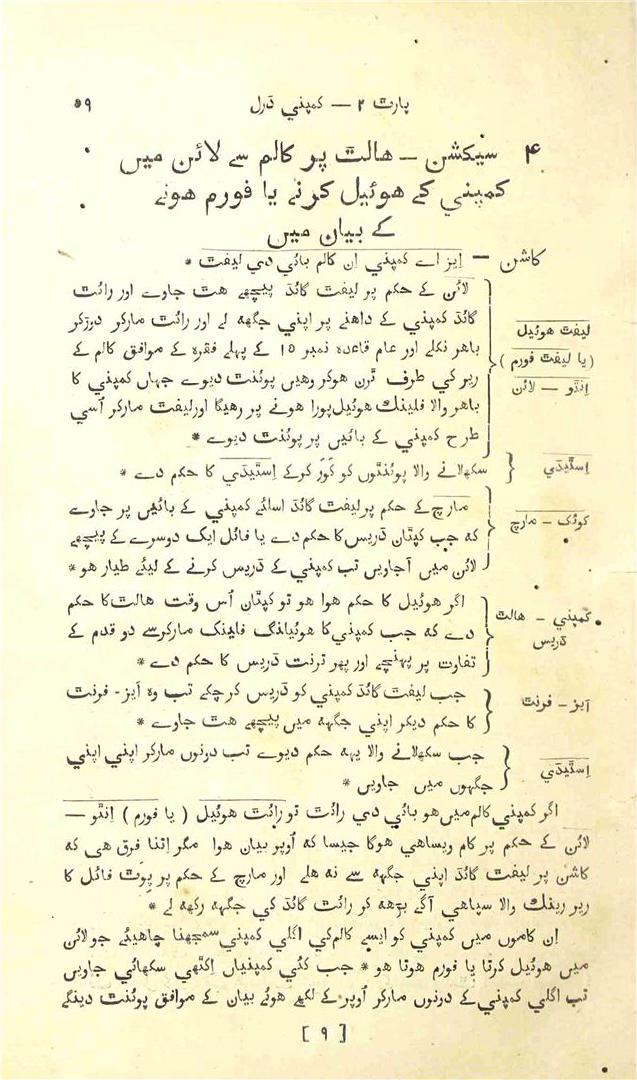 پارٹ ۲ — کمپني ڈرل ۵۹
۴ سیکشن - ھالٹ پر کالم سے لائن میں
کمپني کے ھوئیل کرنے یا فورم ھونے
کے بیان میں
کاشن — ایز اے کمپني اِن کالم بائي دي لیفٹ *
لائن کے حکم پر لیفٹ گائڈ پیچھے ھٹ جاوے اور رائٹ
گائڈ کمپني کے داھنے پر اپني جگھہ لے اور رائٹ مارکر دوڑکر
لیفٹ ھوئیل
باھر نکلے اور عام قاعدہ نمبر ۱۵ کے پہلے فقرہ کے موافق کالم کے
(یا لیفٹ فورم)
ریر کي طرف ٹرن ھوکر وھیں پوئنٹ دیوے جہاں کمپني کا
اِنٹو — لائن
باھر والا فلینک ھوئیل پورا ھونے پر رھیگا اور لیفٹ مارکر اُسي
طرح کمپني کے بائیں پر پوئنٹ دیوے *
اِسٹیڈي
سکھلانے والا پوئنٹوں کو کَوَر کرکے اِسٹیڈي کا حکم دے *
مارچ کے حکم پر لیفٹ گائڈ اسائے کمپني کے بائیں پر جاوے
کوئک - مارچ
کہ جب کپتان ڈریس کا حکم دے یا فائل ایک دوسرے کے پیچھے
لائن میں آجاویں تب کمپني کے ڈریس کرنے کے لیئے طیار ھو *
اگر ھوئیل کا حکم ھوا ھو تو کپتان اُس وقت ھالٹ کا حکم
کمپني - ھالٹ
دے کہ جب کمپني کا ھوئیلنگ فلینک مارکر سے دو قدم کے
ڈریس
تفاوت پر پہنچے اور پھر ترنت ڈریس کا حکم دے *
جب لیفٹ گائڈ کمپني کو ڈریس کرچکے تب وہ آیز - فرنٹ
آیز - فرنٹ
کا حکم دیکر اپني جگھہ میں پیچھے ھٹ جاوے *
جب سکھلانے والا یہہ حکم دیوے تب دونوں مارکر اپني اپني
اِسٹیڈي
جگہوں میں جاویں *
اگر کمپني کالم میں ھو بائي دي رائٹ تو رائٹ ھوئیل ( یا فورم ) اِنٹو —
لائن کے حکم پر کام ویساھي ھوگا جیسا کہ اُوپر بیان ھوا مگر اِتنا فرق ھی کہ
کاشن پر لیفٹ گائڈ اپني جگھہ سے نہ ھلے اور مارچ کے حکم پر پِوَٹ فائل کا
ریر رینک والا سپاھي آگے بڑھہ کر رائٹ گائڈ کي جگھہ رکھہ لے *
اِن کاموں میں کمپني کو ایسے کالم کي اگلي کمپني سمجھنا چاھیئے جو لائن
میں ھوئیل کرتا یا فورم ھوتا ھو * جب کئي کمپنیاں اِکٹھي سکھائي جاویں
تب اگلي کمپني کے دونوں مارکر اُوپر کے لکھے ھوئے بیان کے موافق پوئنٹ دینگے
[ ۹ ]